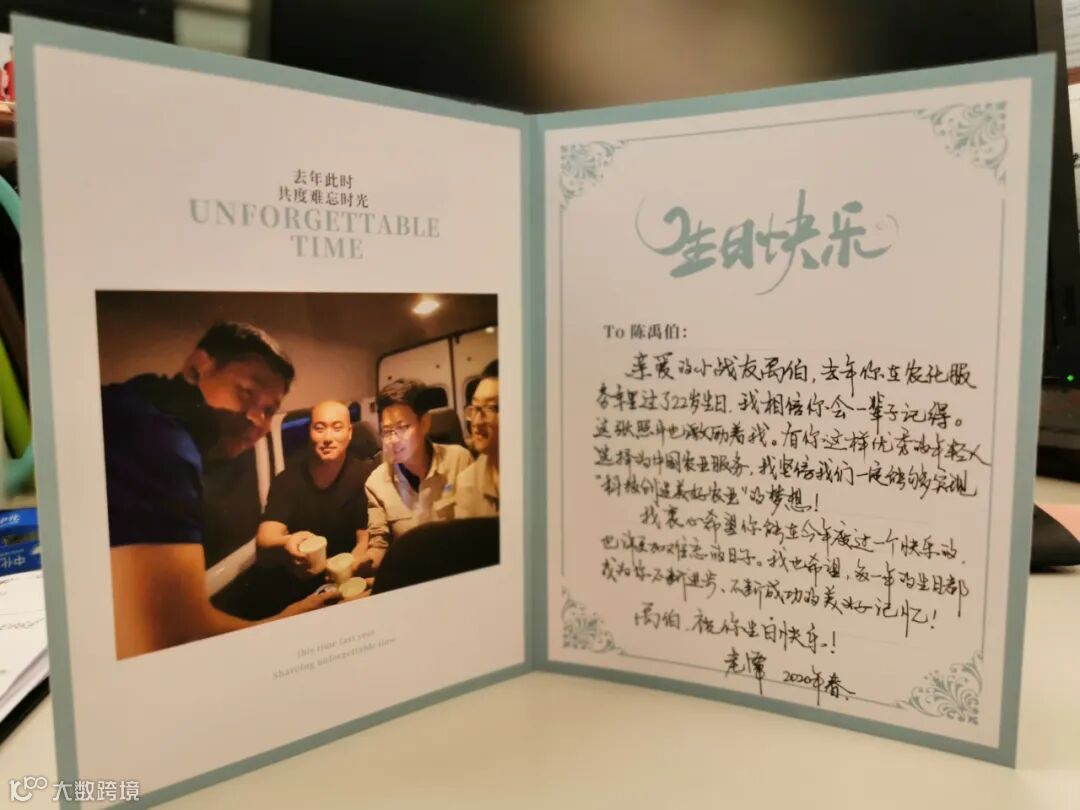 去年此时
共度难忘时光
UNFORGETTABLE
TIME
This time last year
Sharing unforgettable time
生日快乐
To 陈禹伯:
亲爱的小战友禹伯,去年你在农化服
务车里过了22岁生日,我相信你会一辈子记得。
这张照片也激励着我。有你这样优秀的年轻人
选择为中国农业服务,我坚信我们一定能够实现
"科技创造美好农业"的梦想!
我衷心希望你能在今年度过一个快乐的,
也许更加难忘的日子。我也希望,每一年的生日都
成为你不断进步、不断成功的美好记忆!
禹伯,祝你生日快乐!
2020年春.
中化
大数跨境